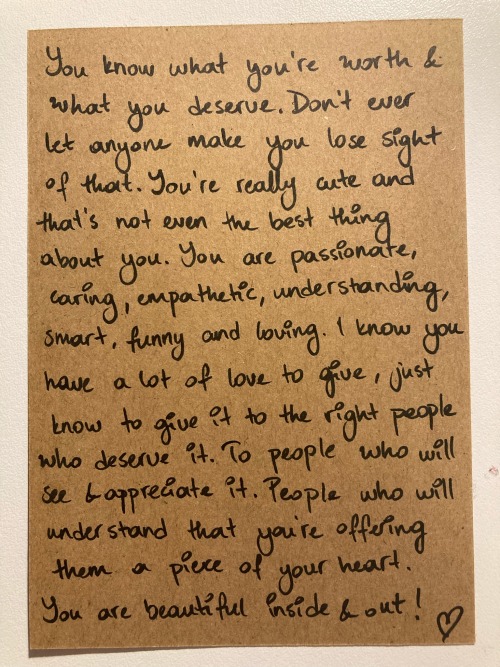 You know what you're worth &
what you deserve. Don't ever
let anyone make you lose sight
of that. You're really cute and
that's not even the best thing
about you. You are passionate,
caring, empathetic, understanding,
smart, funny and loving. I know you
have a lot of love to give, just
know to give it to the right people
who deserve it. To people who will
see & appreciate it. People who will
understand that you're offering
them a piece of your heart.
You are beautiful inside & out! ♡